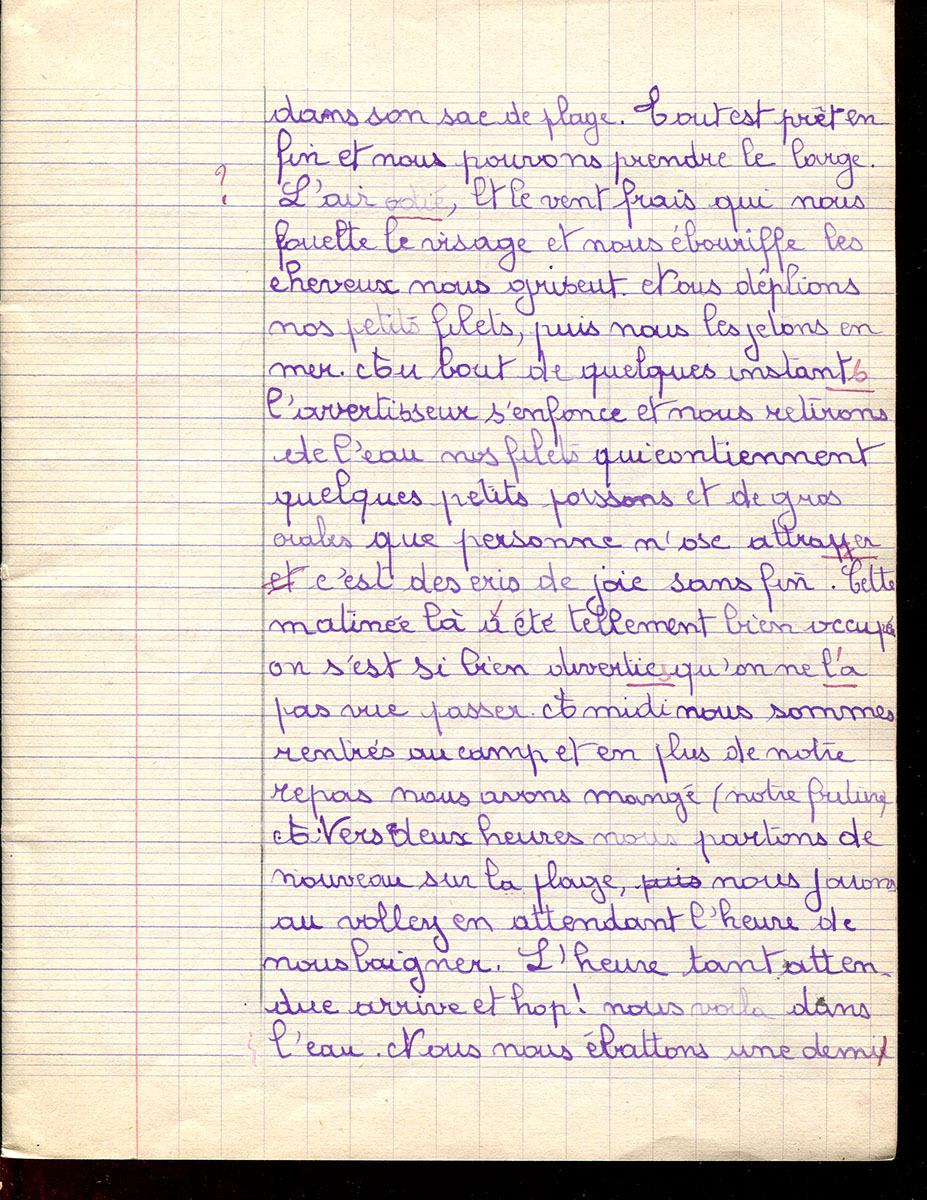 dans son sac de plage. Tout est prêt en
fin et nous pouvons prendre le large.
?
L'air odié, Et le vent frais qui nous
fouette le visage et nous ébouriffe les
cheveux nous grisent. Nous déplions
nos petits filets, puis nous les jetons en
mer. Au bout de quelques instants
l'avertisseur s'enfonce et nous retirons
de l'eau nos filets qui contiennent
quelques petits poissons et de gros
crabes que personne n'ose attrayer
et c'est des cris de joie sans fin. Cette
matinée là à été tellement bien occupé
on s'est si bien diverties qu'on ne l'a
pas vue passer. A midi nous sommes
rentrés au camp et en plus de notre
repas nous avons mangé (notre friture)
A Vers deux heures nous partons de
nouveau sur la plage, puis nous jouons
au volley en attendant l'heure de
nous baigner. L'heure tant atten-
due arrive et hop! nous voila dans
l'eau. Nous nous ébattons une demi